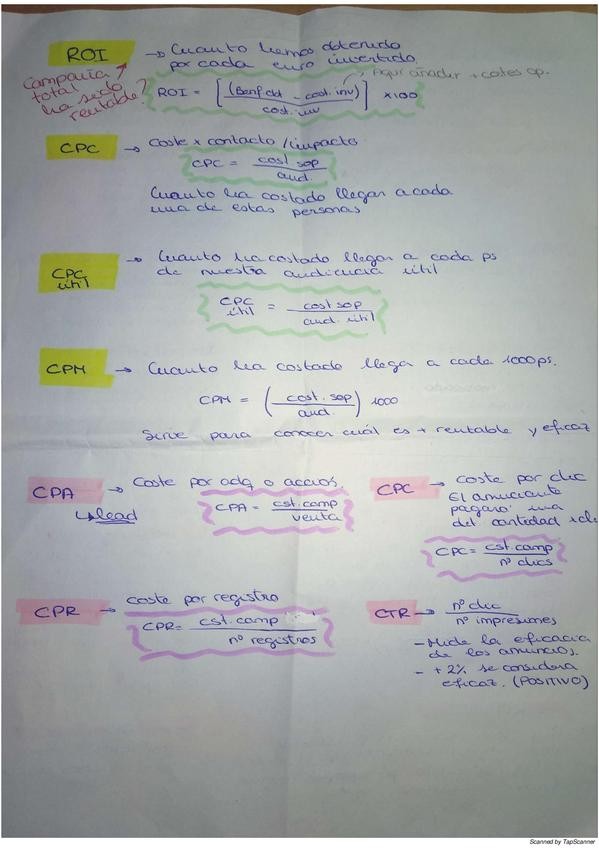 ROI → Cuanto hemos obtenido
por cada euro invertido.
Campaña
total
ha sido
rentable?
Aquí añadir + costes op.
ROI = [(Benf obt - cost. inv) / cost. inv] x 100
CPC → Coste x contacto / impacto
CPC = cost sop / aud.
Cuanto ha costado llegar a cada
una de estas personas
CPC útil → Cuanto ha costado llegar a cada ps
de nuestra audiencia útil
CPC útil = cost sop / aud. útil
CPM → Cuanto ha costado llega a cada 1000 ps.
CPM = (cost. sop / aud.) 1000
Sirve para conocer cuál es + rentable y eficaz
CPA → Coste por adq o acciós
↳ lead
CPA = cst. camp / venta
CPC → coste por clic
El anunciante
pagará una
del cantidad x
CPC = cst. camp / nº clics
CPR → coste por registro
CPR = cst. camp / nº registros
CTR → nº clic / nº impresiones
- Mide la eficacia
de los anuncios.
- + 2% se considera
eficaz. (POSITIVO)
Scanned by TapScanner